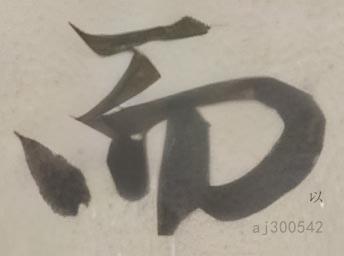 而
以
aj300542